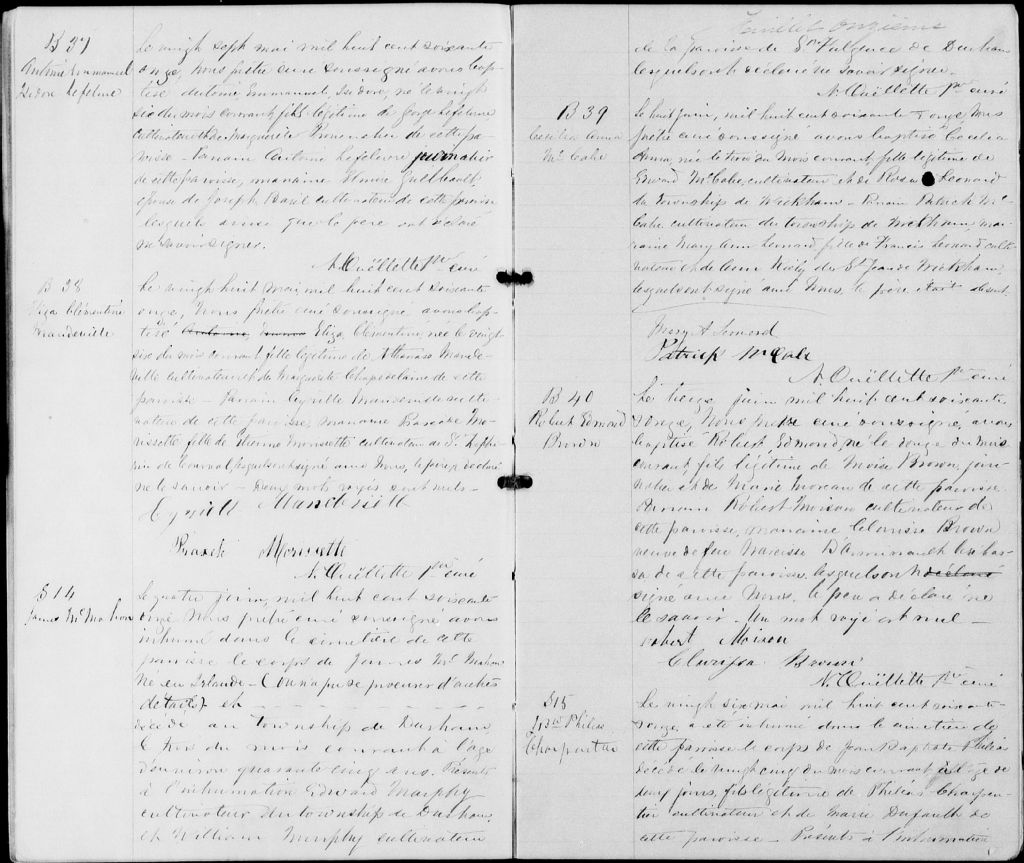 B 37
Antoine Emmanuel
Isidore Lefebvre
Le vingt sept mai mil huit cent soixante
onze, Nous prêtre curé soussigné avons bap-
tisé Antoine, Emmanuel, Isidore, né le vingt
six du mois courant fils légitime de George Lefebvre
cultivateur et de Marguerite de cette pa-
roisse - Parrain Antoine Lefebvre journalier
de cette paroisse, marraine Guilbeault,
épouse de Joseph Basil cultivateur de cette paroisse
lesquels ainsi que le père ont déclaré
ne savoir signer.
N. Ouëllette Ptre curé
B 38
Eliza Clémentine
Mandeville
Le vingt huit mai mil huit cent soixante
onze, Nous prêtre curé soussigné avons bap-
tisé Eliza, Clémentine, née le vingt
six du mois courant fille légitime de Athanase Mande-
ville cultivateur et de Marguerite Chapdelaine de cette
paroisse - Parrain Cyrille Mandeville culti-
vateur de cette paroisse, marraine Praxède Mo-
rissette fille de Etienne Morrissette cultivateur de St. Zéphi-
rin de Courval, lesquels ont signé avec Nous, le père a déclaré
ne le savoir - Deux mots rayés sont nuls -
Cyrille Mandeville
Praxede Morissette
N. Ouëllette Ptre curé
S 14
James McMahon
Le quatre juin, mil huit cent soixante
onze Nous prêtre curé soussigné avons
inhumé dans le cimetière de cette
paroisse le corps de James McMahon
Né en Irlande - (on n'a pu se procurer d'autres
détails) et
décédé au township de Durham
le trois du mois courant à l'âge
d'environ quarante cinq ans. Présents
à l'inhumation Edward Murphy
cultivateur du township de Durham,
et William Murphy cultivateur
Feuillet onzième
de la paroisse de St. Fulgence de Durham
lesquels ont déclaré ne savoir signer.
N. Ouëllette Ptre curé
B 39
Cecilia Anna
McCabe
Le huit juin, mil huit cent soixante & onze, Nous
prêtre curé soussigné avons baptisé Cecilia
Anna, née le trois du mois courant, fille légitime de
Edward McCabe, cultivateur et de Rosa Leonard
du Township de Wickham - Parrain Patrick Mc-
Cabe cultivateur du township de Wickham, mar-
raine Mary Ann Leonard, fille de Francis Leonard culti-
vateur et de Ann de St. Jean de Wickham,
lesquels ont signé avec Nous, le père était absent.
Mary A Leonard
Patrick McCabe
N. Ouëllette Ptre curé
B 40
Robert Edmond
Brown
Le treize juin mil huit cent soixante
& onze, Nous prêtre curé soussigné, avons
baptisé Robert, Edmond, né le douze du mois
courant, fils légitime de Moïse Brown, jour-
nalier et de Marie Moreau de cette paroisse
Parrain Robert Moison cultivateur de
cette paroisse, marraine Clarisse Brown
veuve de feu Narcisse
de cette paroisse, lesquels ont déclaré
signé avec Nous, le père a déclaré ne
le savoir. Un mot rayé est nul -
robert Moison
Clarissa Brown
N. Ouëllette Ptre curé
S 15
J. Bte Philias
Charpentier
Le vingt six mai mil huit cent soixante
& onze, a été inhumé dans le cimetière de
cette paroisse le corps de Jean Baptiste Philias
décédé le vingt cinq du mois courant, âgé de
jours, fils légitime de Philias Charpen-
tier cultivateur et de Marie Dufault de
cette paroisse - Présents à l'inhumation